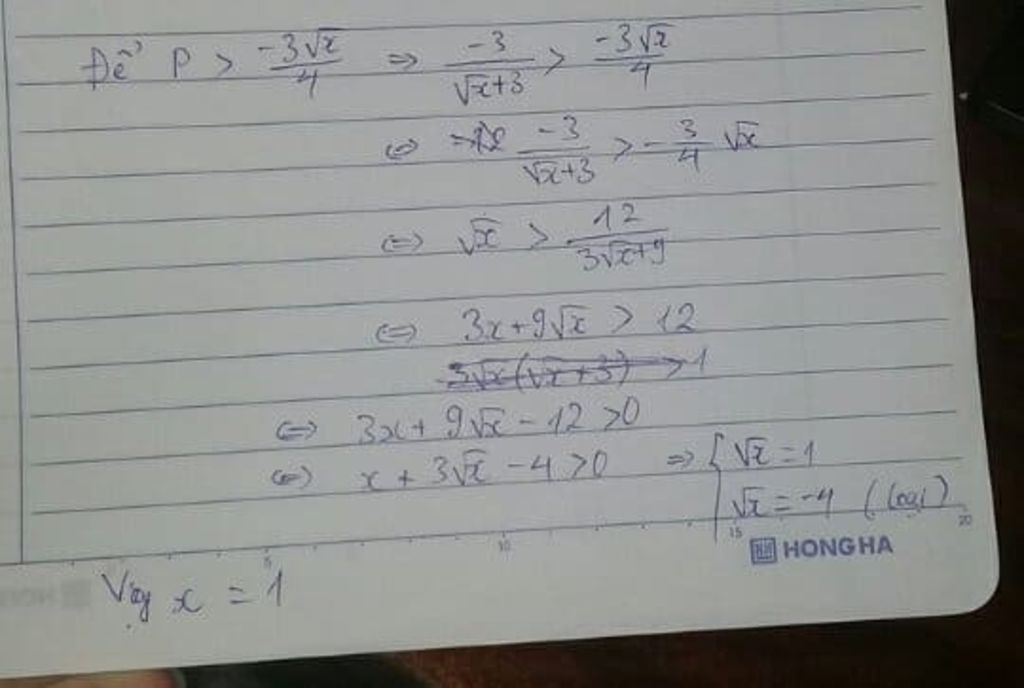 Để P > -3√x/4 => -3/(√x+3) > -3√x/4
<=> -3/(√x+3) > -3/4 √x
<=> √x > 12/(3√x+9)
<=> 3x+9√x > 12
3√x(√x+3) > 1
<=> 3x+ 9√x - 12 >0
<=> x + 3√x - 4 >0 => { √x = 1
√x = -4 (loại)
5 10 15 20
HONG HA
Vậy x = 1